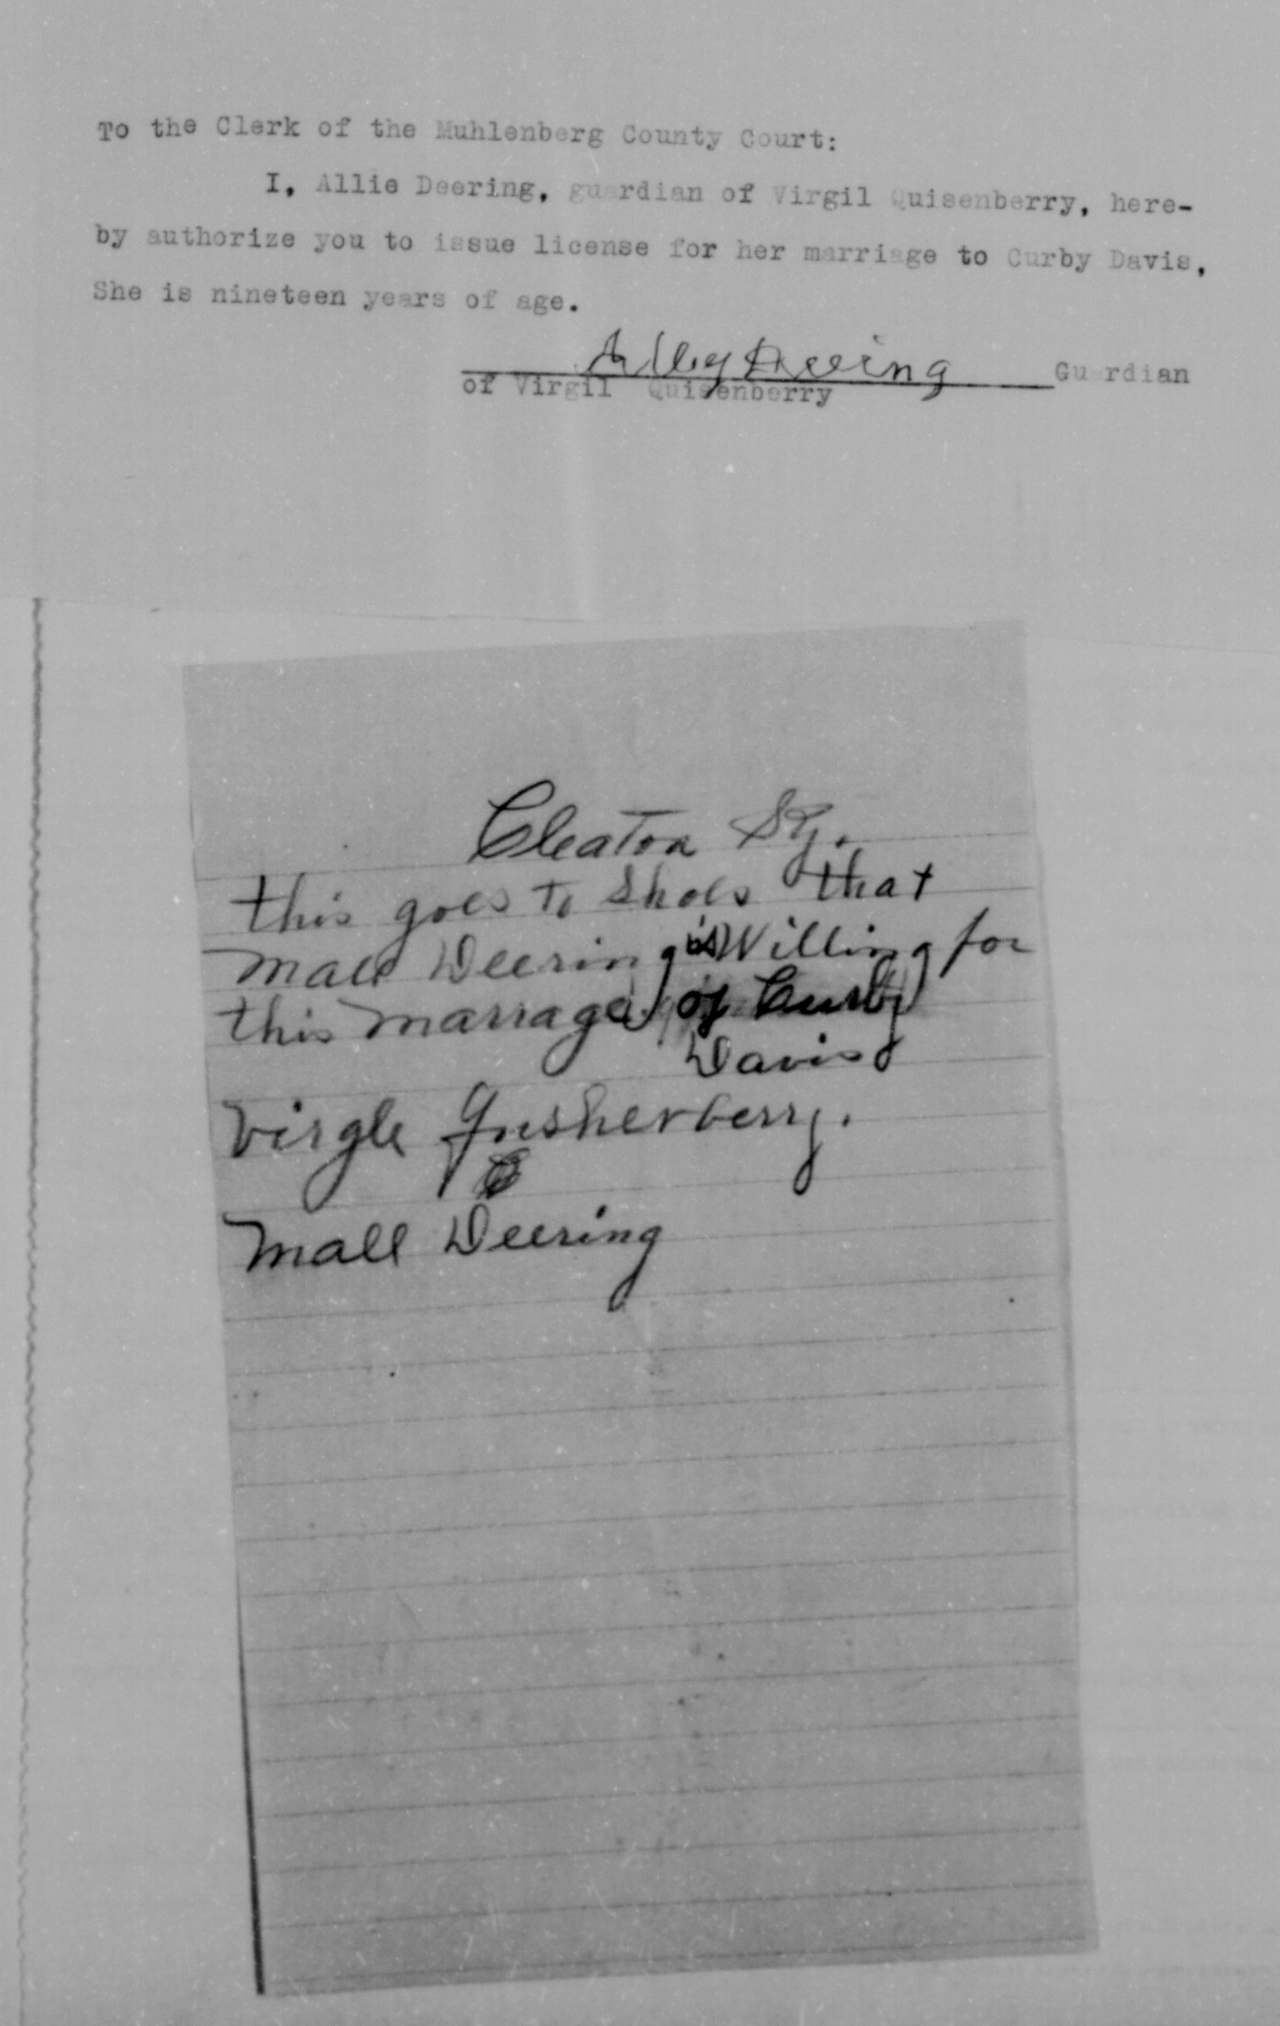 To the Clerk of the Muhlenberg County Court:
I, Allie Deering, guardian of Virgil Quisenberry, here-
by authorize you to issue license for her marriage to Curby Davis,
She is nineteen years of age.
Alley Deering Guardian
of Virgil Quisenberry
Cleaton Ky.
this goes To Shows that
Mall Deering is Willing for
this marrage of Curby
Davis
Virgle Qusherberry.
Mall Deering